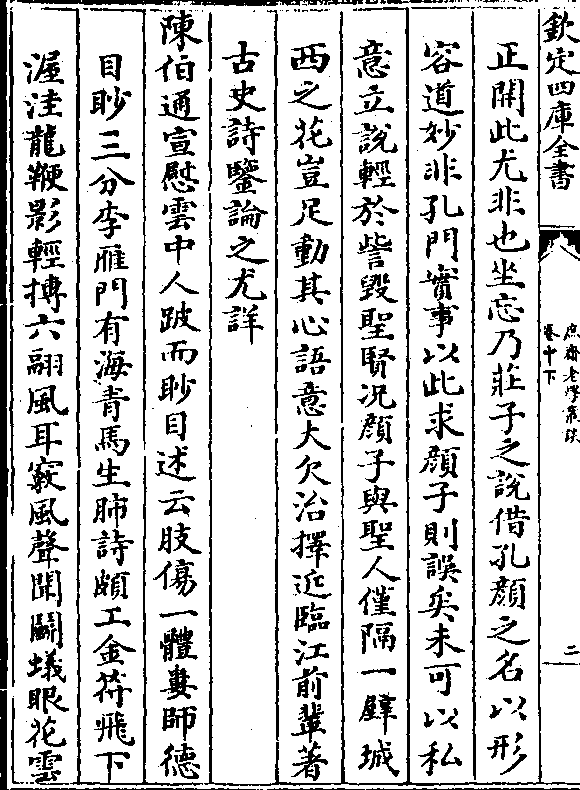 欽定四庫全書
庶齋老學叢談
卷中下
二
正開此尤非也坐忘乃莊子之說借孔顏之名以形
容道妙非孔門實事以此求顏子則誤矣未可以私
意立說輕於訾毀聖賢况顏子與聖人僅隔一壁城
西之花豈足動其心語意大欠治擇近臨江前輩著
古史詩鑒論之尤詳
陳伯通宣慰雲中人跛而眇目述云肢傷一體婁師德
目眇三分李雁門有海青馬生肺詩頗工金符飛下
渥洼龍鞭影輕摶六翮風耳竅風聲聞鬭蟻眼花雲